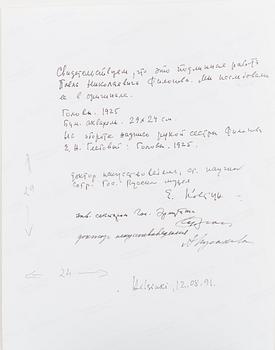 Свидетельствуем, что это подлинная работа
Павла Николаевича Филонова. Мы исследовали
ее в оригинале.
Головы. 1925
Бум. акварель. 29 х 24 см.
На обороте надпись рукой сестры Филонова
Е. Н. Глебовой: Головы. 1925.
доктор искусствоведения, ст. научный
сотр. Гос. Русский музей
Е. Ковтун
зав. сектором Гос. Эрмитажа
доктор искусствоведения
29
24
Helsinki, 12.08.91.